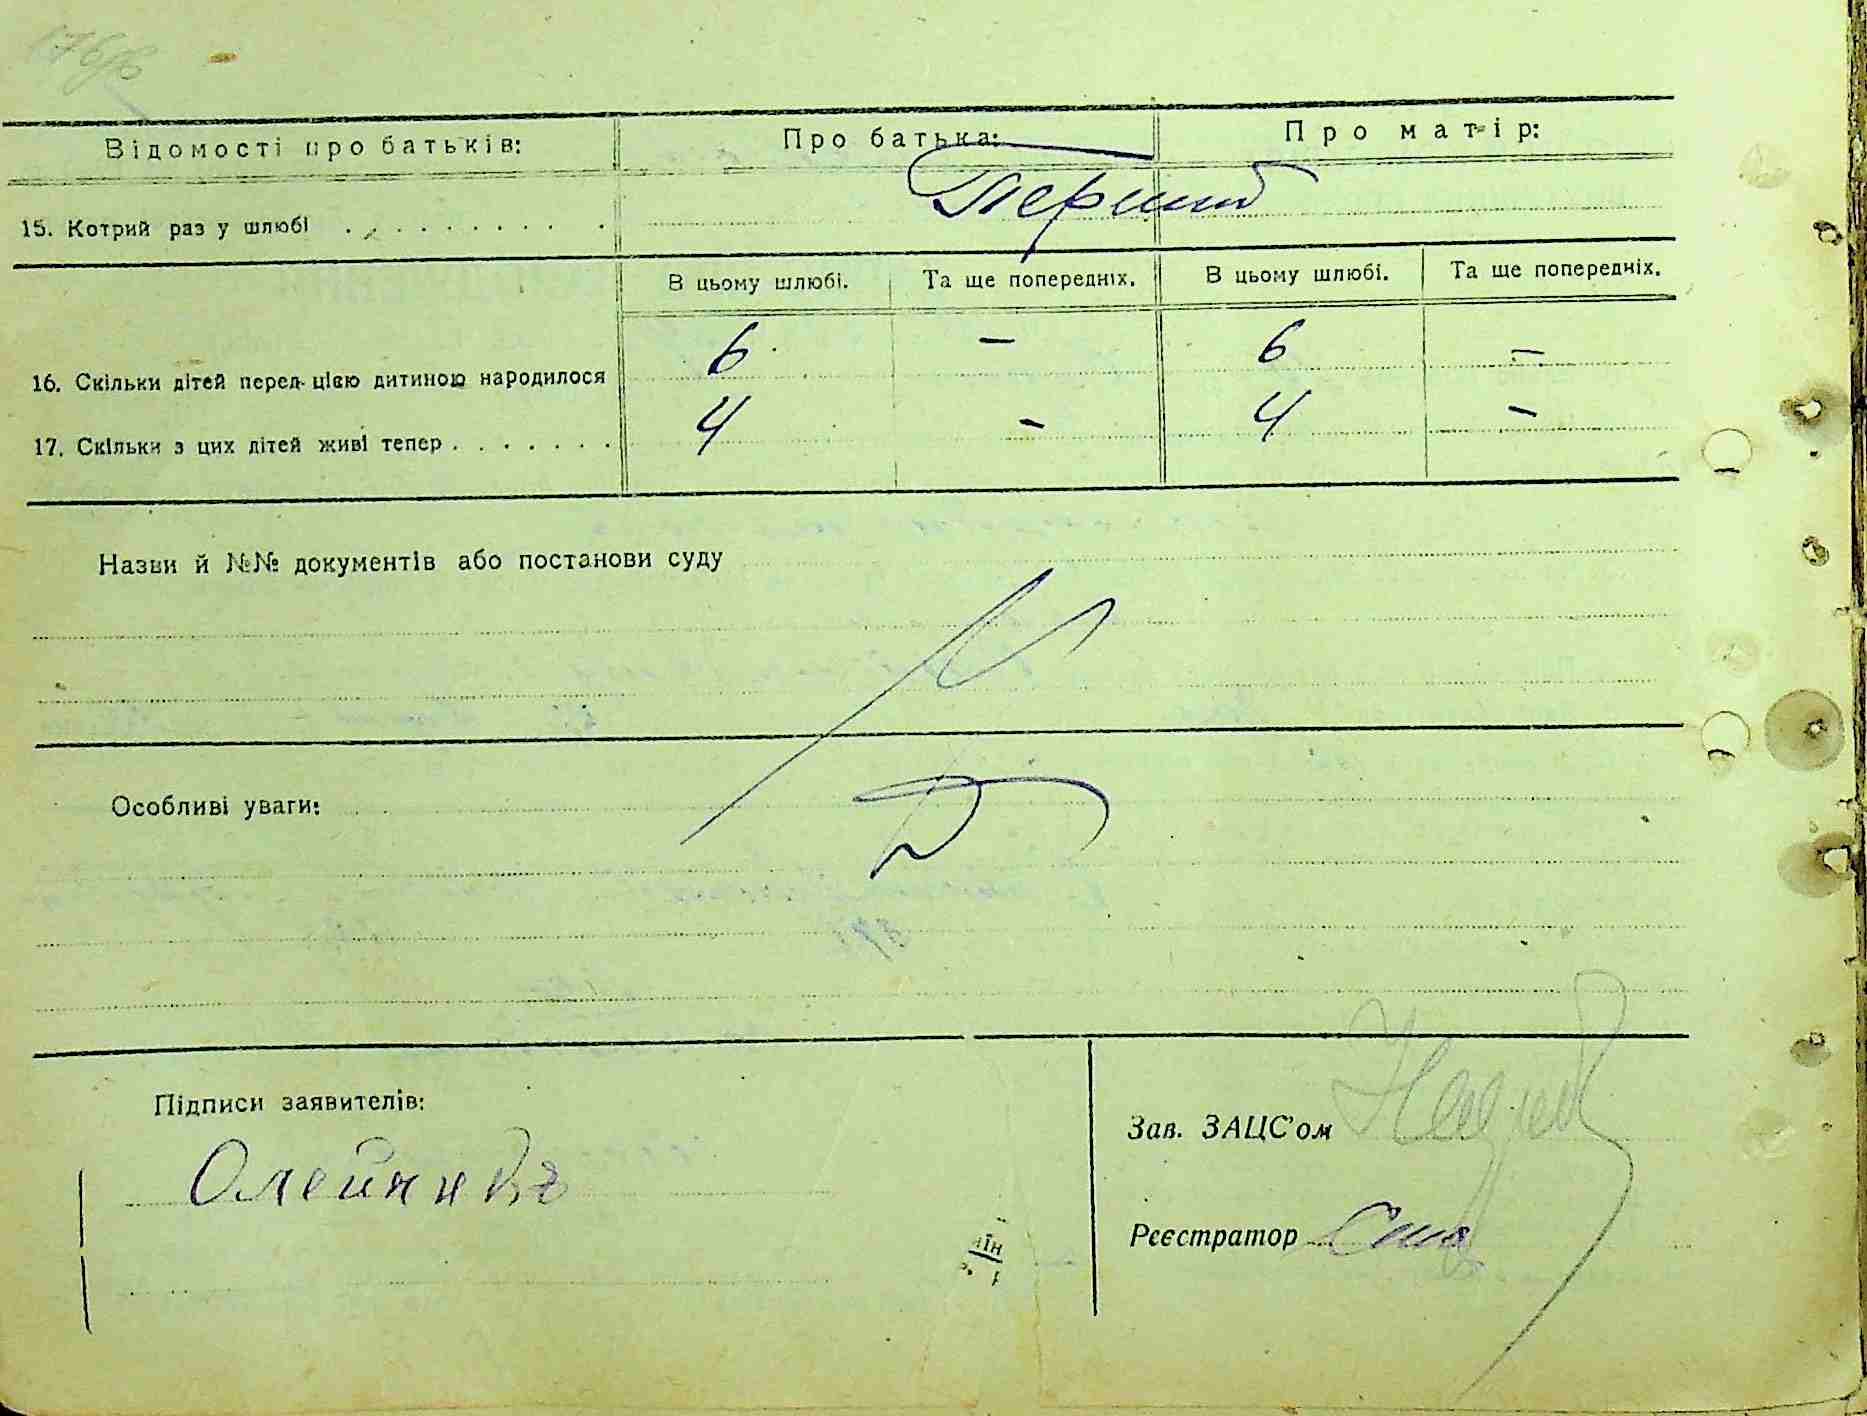 Відомості про батьків: Про батька: Про матір:
15. Котрий раз у шлюбі . . . . . . . . . . Перший
В цьому шлюбі. Та ще попередніх. В цьому шлюбі. Та ще попередніх.
16. Скільки дітей перед цією дитиною народилося 6 – 6 –
17. Скільки з цих дітей живі тепер . . . . . . . 4 – 4 –
Назви й №№ документів або постанови суду
Особливі уваги:
Підписи заявителів:
Зав. ЗАЦС'ом
Реєстратор